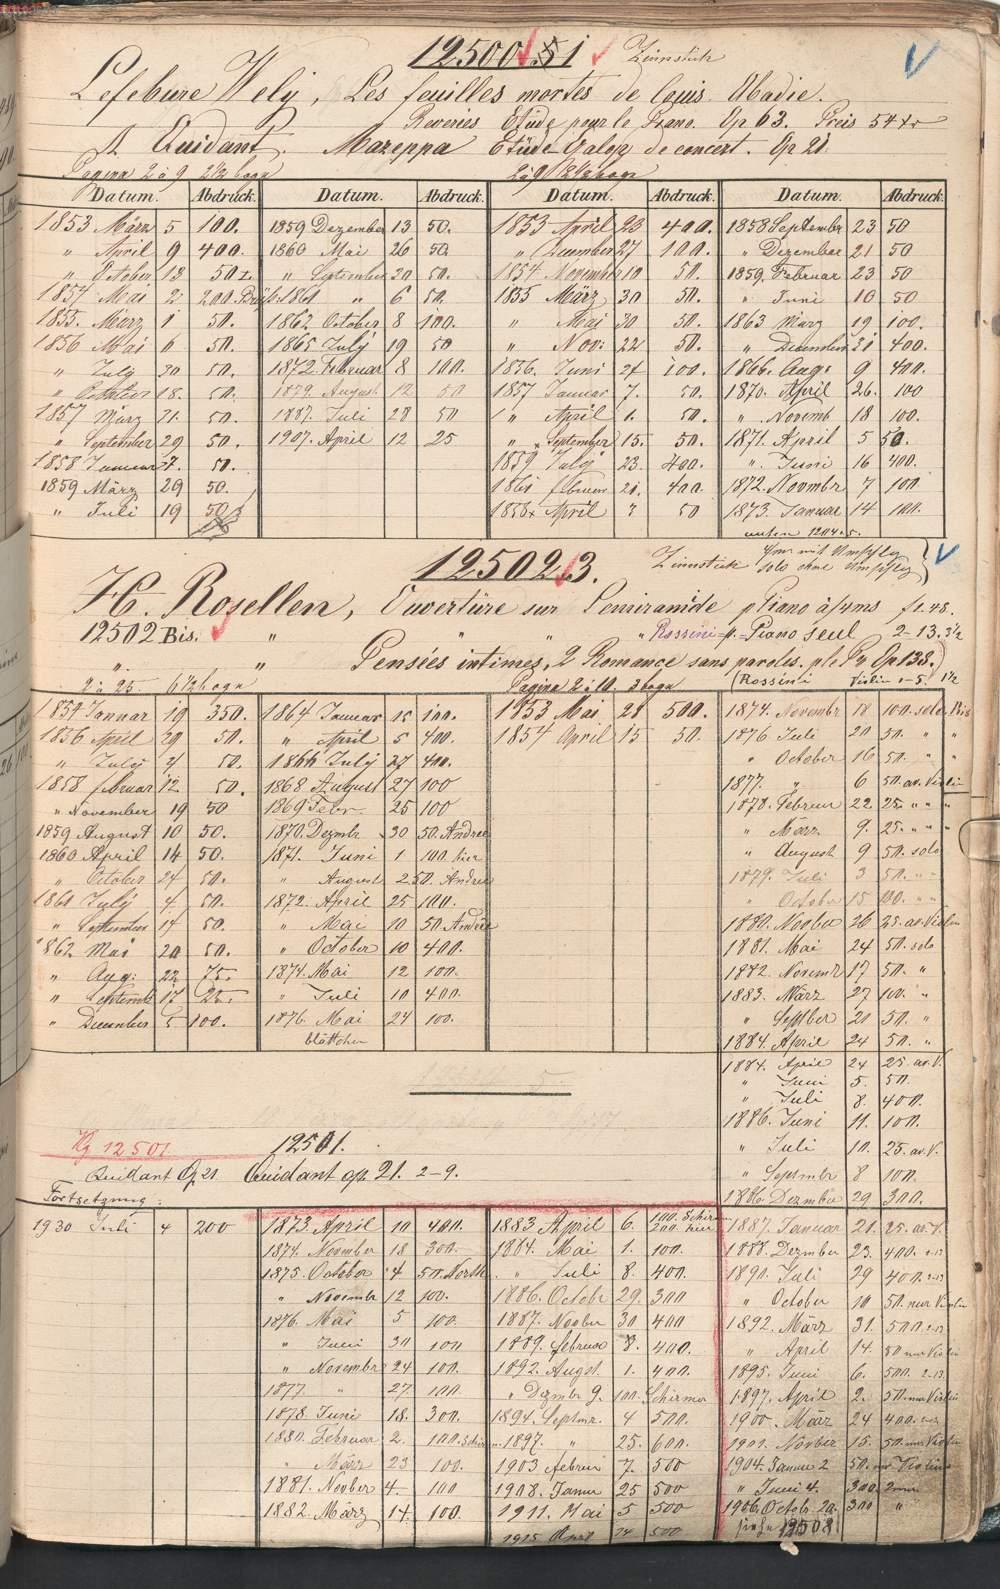 12500.51 Zinnstück
Lefebure Wely, Les feuilles mortes de Louis Abadie.
Reveries Etüde pour le Piano. Op 63. Preis 54 xr
A. Quidant. Mazeppa Etüde Galop de concert. Op 21.
Pagina 2 à 9 2½ bogn 2 à 9 2½ bogn
Datum. Abdruck. Datum. Abdruck. Datum. Abdruck. Datum. Abdruck.
1853 März 5 100. 1859 Dezember 13 50. 1853 April 23 400. 1858 Septembr 23 50
" April 9 400. 1860 Mai 26 50. " Dezember 27 100. " Dezember 21 50
" October 13 50 1. " September 20 50. 1854 November 10 50. 1859. Februar 23 50
1854 Mai 2 200. 1861 " 6 50. 1855 März 30 50. " Juni 10 50
1855. März 1 50. 1862 October 8 100. " Mai 30 50. 1863 März 19 100.
1856 Mai 6 50. 1865 July 19 50 " Nov: 22 50. " Dezember 31 400.
" July 30 50. 1872 Februar 8 100. 1856. Juni 24 100. 1866. Aug: 9 400.
" October 18. 50. 1879. August 12 50 1857 Januar 7. 50. 1870. April 26. 100
1857 März 21. 50. 1887. Juli 28 50 " April 1. 50. " Novemb 18 100.
" September 29 50. 1907. April 12 25 " September 15. 50. 1871. April 5 50.
1858 Januar 7. 50. 1859 July 23. 400. " Juni 16 400.
1859 März 29 50. 1861 februar 21. 400. 1872. Novmbr 7 100
" Juli 19 50 April 3 50 1873. Januar 14 100.
unten 1204.5.
12502.3. Zinnstück 4/ms mit Umschlag
solo ohne Umschlag
H. Rosellen, Ouvertüre sur Semiramide p Piano à/4ms f 1.48.
12502 Bis. " " " Rossini = p. = Piano seul 2–13. 3½
" " Pensées intimes, 2 Romance sans paroles. p le P. Op 138.
2 à 25. 6½ bogn Pagina 2 à 10. 3 bogn (Rossini Violin 1–5. 1½
1854 Januar 19 350. 1864 Januar 15 100. 1853 Mai 28 500. 1874. Novembr 18 100. solo Bis
1856 April 29 50. " April 5 400. 1854 April 15 50. 1876 Juli 20 50. " "
" July 4 50. 1866 July 27 400. " October 16 50. "
1858 februar 12. 50. 1868 August 27 100 1877. " 6 50. av. Violin
" November 19 50 1869 Febr. 25 100 1878. Februar 22 25. " " "
1859 August 10 50. 1870. Dezmbr 30 50. Andree " März 9. 25. " " "
1860 April 14 50. 1871. Juni 1 100. hier " August 9 50. solo
" October 24 50. " August 2 50. Andree 1879. Juli 3 50. " "
1861 July 4 50. 1872. April 25 100. " October 15 100. " "
" September 14 50. " Mai 10 50. Andrée 1880. Novber 26 25. av. Violin
1862 Mai 20 50. " October 10 400. 1881. Mai 24 50. solo
" Aug: 22 75. 1874. Mai 12 100. 1882. Novemr 17 50. "
" Septemb 17 25. " Juli 10 400. 1883. März 27 100. "
" December 5 100. 1876. Mai 24 100. " Septber 20 50. "
blättchen 1884. April 24 50. "
1884. April 24 25. av. V.
" Juni 5. 50.
" Juli 8. 400.
1886. Juni 11. 100.
Hz 12501. 12501. " Juli 10. 25. av. V.
Quidant Op 21 Quidant op. 21. 2–9. " Septmbr 8 100.
Fortsetzung: 1886 Dezmber 29 300.
1930 Juli 4 200 1873. April 10 400. 1883 April 6. 100. Schirmr 200. hier 1887. Januar 21. 25. av. V.
1874. Novmber 18 300. 1884. Mai 1. 100. 1888. Dezmber 23. 400. 2–13
1875. October 4 50. North " Juli 8. 400. 1890. Juli 29 400. 2–13
" Novembr 12 100. 1886. Octobr 29. 300 " October 10 50. nur Violin
1876. Mai 5 100. 1887. Novber 30 400 1892. März 31. 500. 2–13
" Juni 30 100 1889. februar 8. 400. " April 14. 50 nur Violin
" November 24 100. 1892. Augst. 1. 400. 1895. Juni 6. 500. 2–13.
1877. " 27. 100. " Dezmbr 9. 100. Schirmer 1897. April 2. 50. nur Violin
1878. Juni 18. 300. 1894. Septmr. 4 500. 1900. März 24 400. 2–13
1880. Februar 2. 100. Schirm. 1897. " 25. 600. 1901. Novber 15. 50. nur Violin
" März 23 100. 1903 februar 7. 500 1904. Januar 2 50. nur Violine
1881. Novber 4. 100 1908. Janur 25 500 " Juni 4. 300.
1882. März 14. 100. 1911. Mai 5 500 1906. Octob. 20. 300 "
1915 April 14 500 siehe 12502